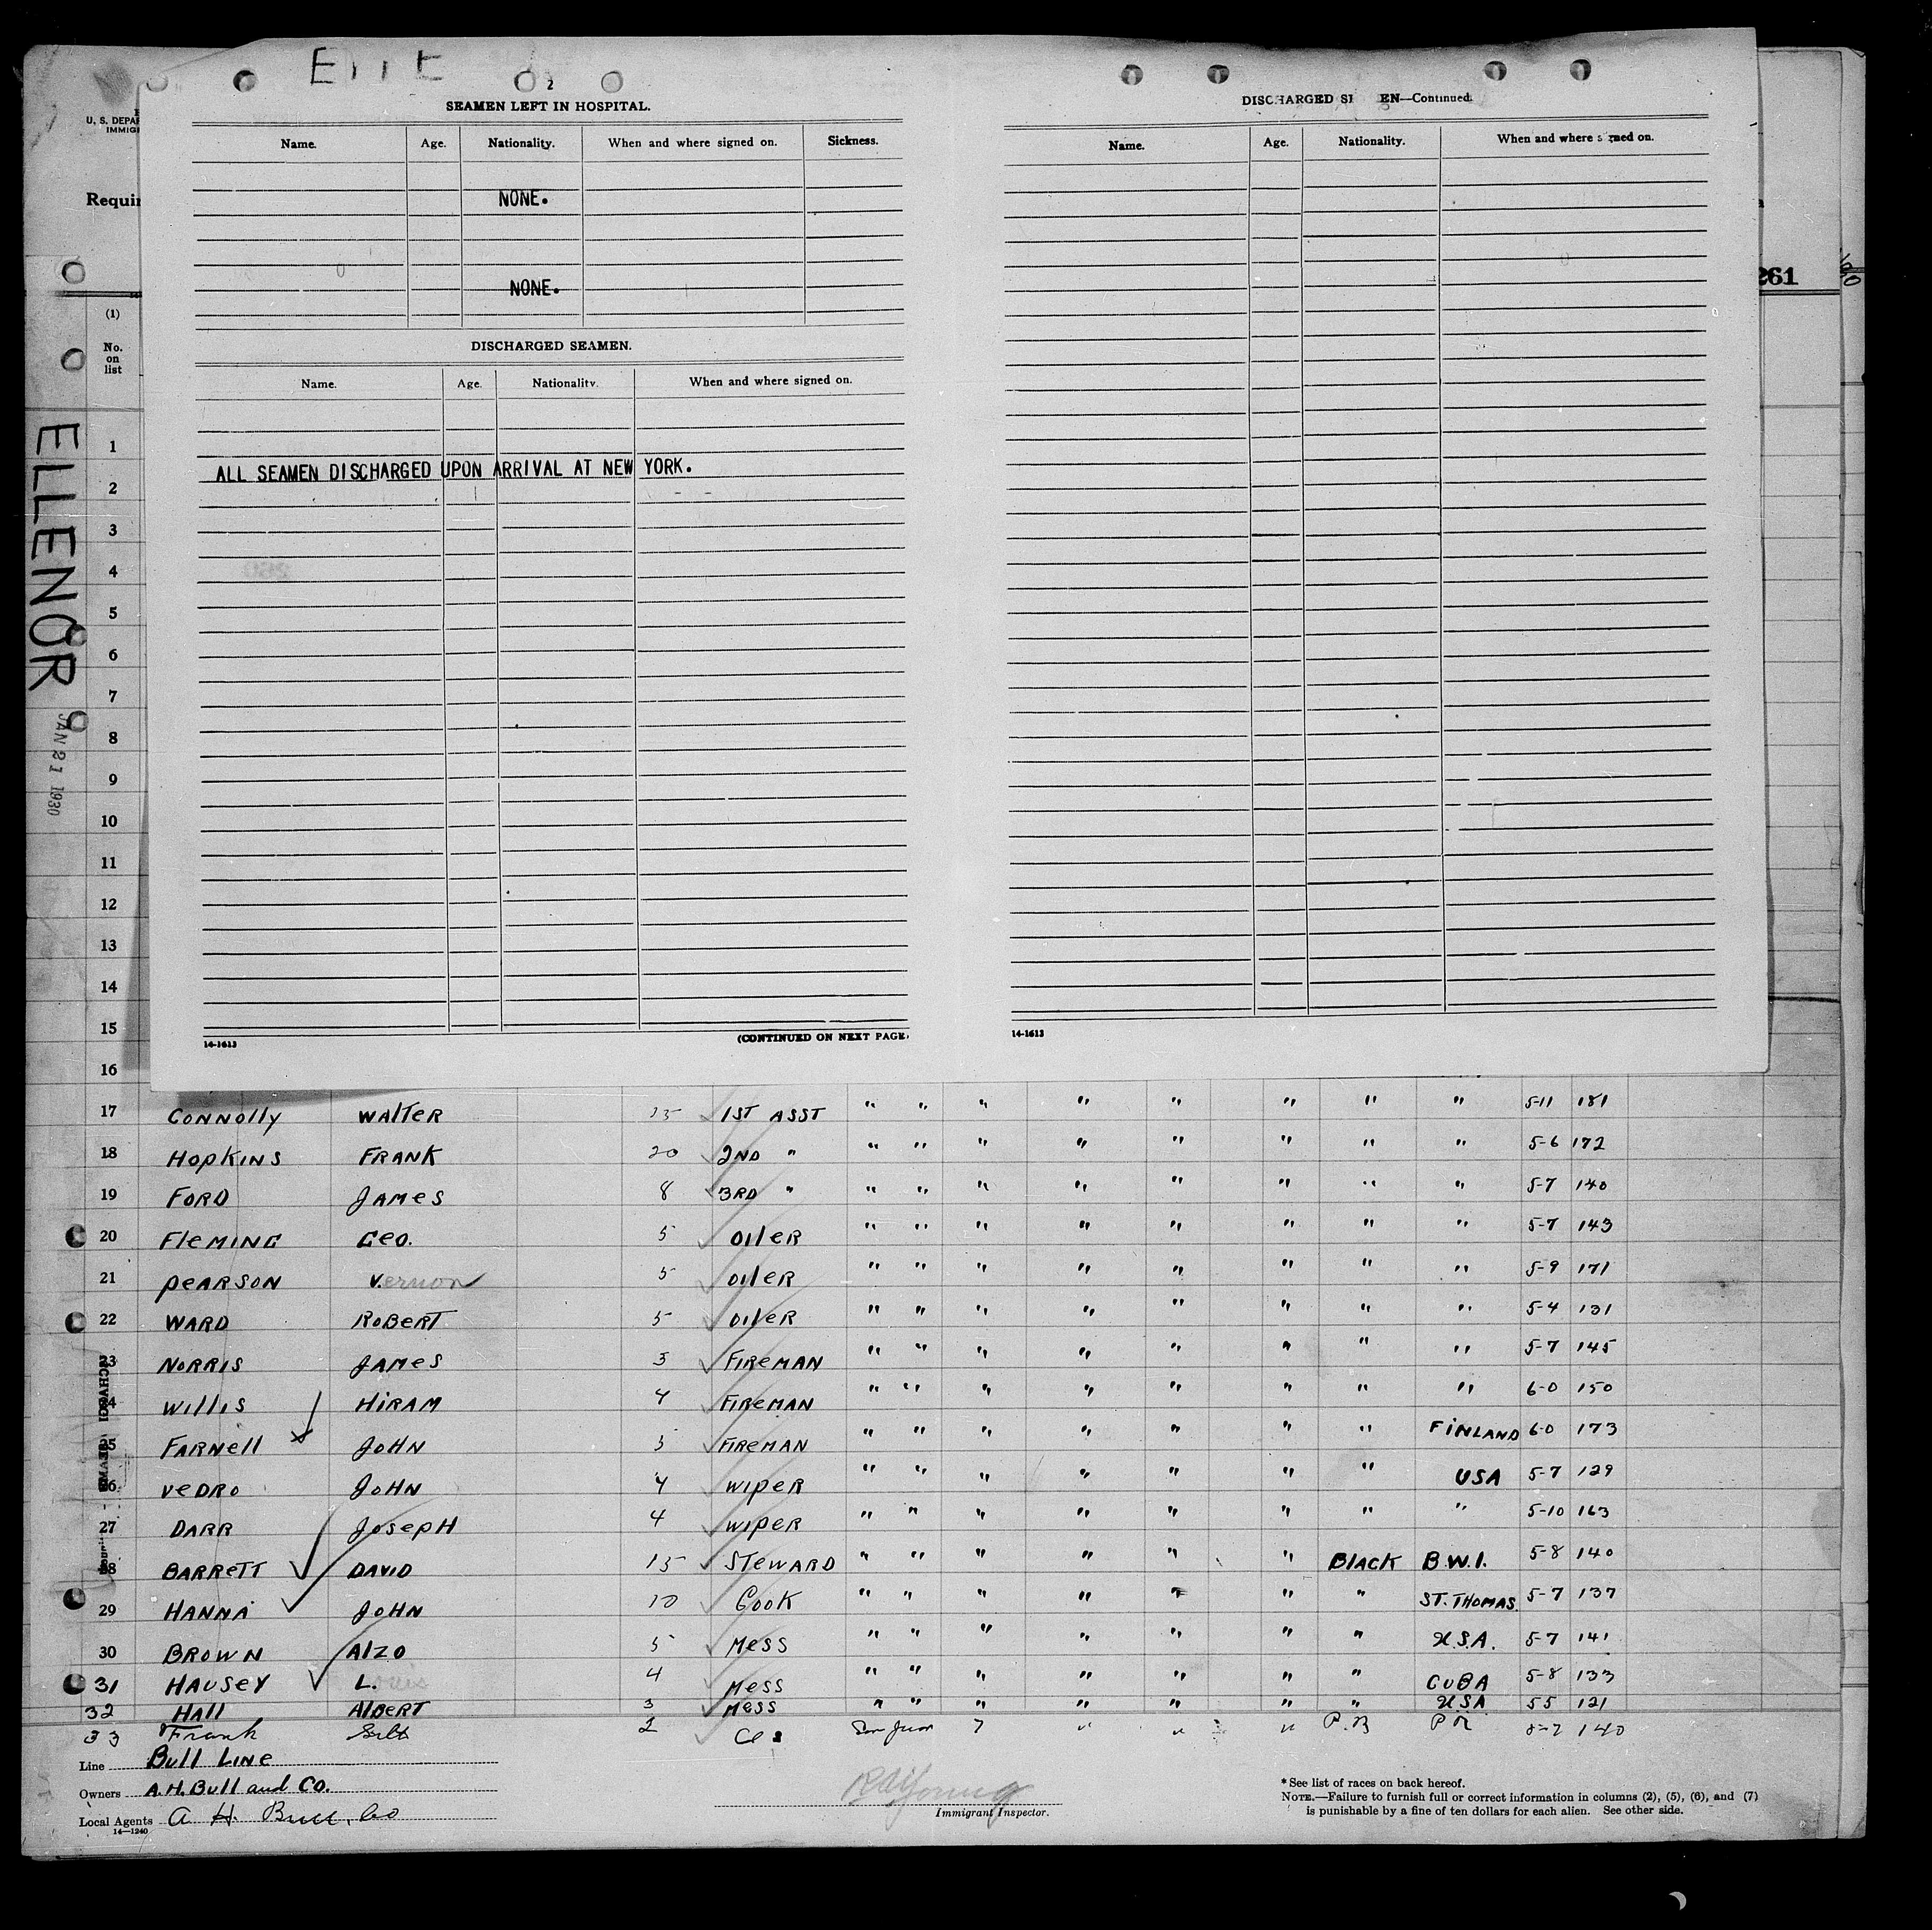 2
SEAMEN LEFT IN HOSPITAL.
Name. Age. Nationality. When and where signed on. Sickness.
NONE.
NONE.
DISCHARGED SEAMEN.
Name. Age. Nationality. When and where signed on.
ALL SEAMEN DISCHARGED UPON ARRIVAL AT NEW YORK.
14-1613 (CONTINUED ON NEXT PAGE
DISCHARGED SE EN—Continued.
Name. Age. Nationality. When and where signed on.
14-1613
U. S. DEPA
IMMIG
Requi
261
(1)
No.
on
list
ELLENOR
JAN 21 1930
1
2
3
4
5
6
7
8
9
10
11
12
13
14
15
16
17 CONNOLLY WALTER 15 1ST ASST " " " " " " " " 5-11 181
18 HOPKINS FRANK 20 2ND " " " " " " " " " 5-6 172
19 FORD JAMES 8 3RD " " " " " " " " " 5-7 140
20 FLEMING GEO. 5 OILER " " " " " " " " 5-7 143
21 PEARSON Vernon 5 OILER " " " " " " " " 5-9 171
22 WARD ROBERT 5 OILER " " " " " " " " 5-4 131
23 NORRIS JAMES 3 FIREMAN " " " " " " " " 5-7 145
24 WILLIS HIRAM 4 FIREMAN " " " " " " " " 6-0 150
25 FARNELL JOHN 3 FIREMAN " " " " " " " FINLAND 6-0 173
26 VEDRO JOHN 4 WIPER " " " " " " " USA 5-7 129
27 DARR JOSEPH 4 WIPER " " " " " " " " 5-10 163
28 BARRETT DAVID 15 STEWARD " " " " " " BLACK B.W.I. 5-8 140
29 HANNA JOHN 10 COOK " " " " " " " ST. THOMAS. 5-7 137
30 BROWN ALZO 5 MESS " " " " " " " U.S.A. 5-7 141
31 HAUSEY L. 4 MESS " " " " " " " CUBA 5-8 133
32 HALL ALBERT 3 MESS " " " " " " " USA 5 5 121
33 Frank 2 San Juan 7 " " " P.R P R 140
Line Bull Line
Owners A.H. Bull and Co.
Local Agents A H. Bull, Co
14—1240
Immigrant Inspector.
* See list of races on back hereof.
NOTE.—Failure to furnish full or correct information in columns (2), (5), (6), and (7)
is punishable by a fine of ten dollars for each alien. See other side.